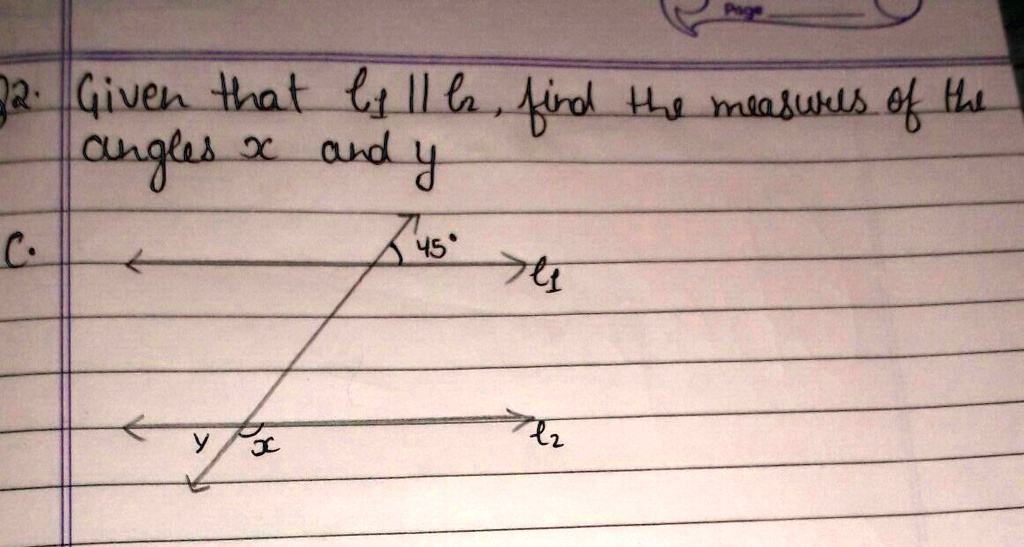 Page
Q2. Given that l1 || l2, find the measures of the
angles x and y
C.
45°
l1
y x
l2